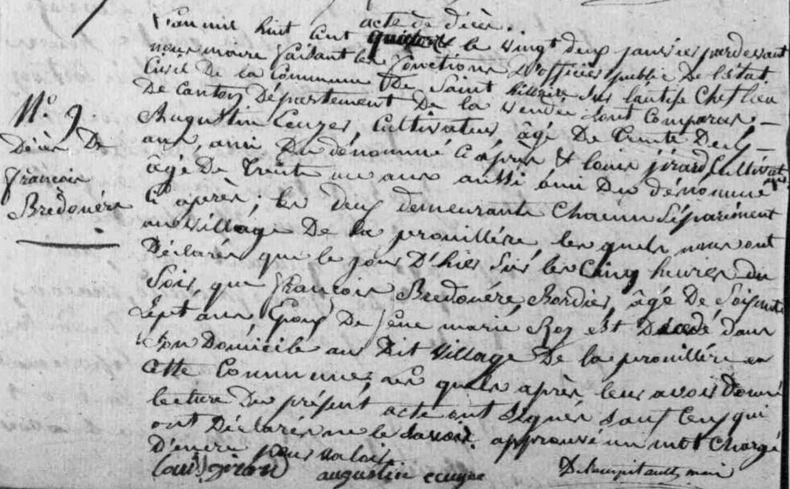 acte de décès.
L'an mil huit cent quatorze le vingt deux janvier pardevant
nous maire faisant les fonctions d'officier public de l'état
Civil De la Commune De Saint hillaire sur l'autise Chef lieu
De Canton Département De la vendée sont Comparus
Augustin Cuyer, Cultivateur, âgé De trente Deux
ans, ami Du dénommé Ci après & louis girard Cultivateur
âgé De trente un ans aussi ami Du dénommé
Ci après; les deux demeurants Chacun séparément
au village De la prouillère, les quels nous ont
Déclarés que le jour D'hier sur les Cinq heures du
Soir, que françois Bredouère Bordier, âgé De Soixante
Sept ans Epoux De marie est Décédé dans
son Domicile au Dit village De la prouillère en
cette Commune; les quels après leur avoir donné
lecture Du présent acte ont signés sauf ceux qui
ont Déclarés ne le savoir. approuvé un mot chargé
D'encre pour valoir
louis girard augustin cuyer maire
N.º 9.
Décès De
françois
Bredouère